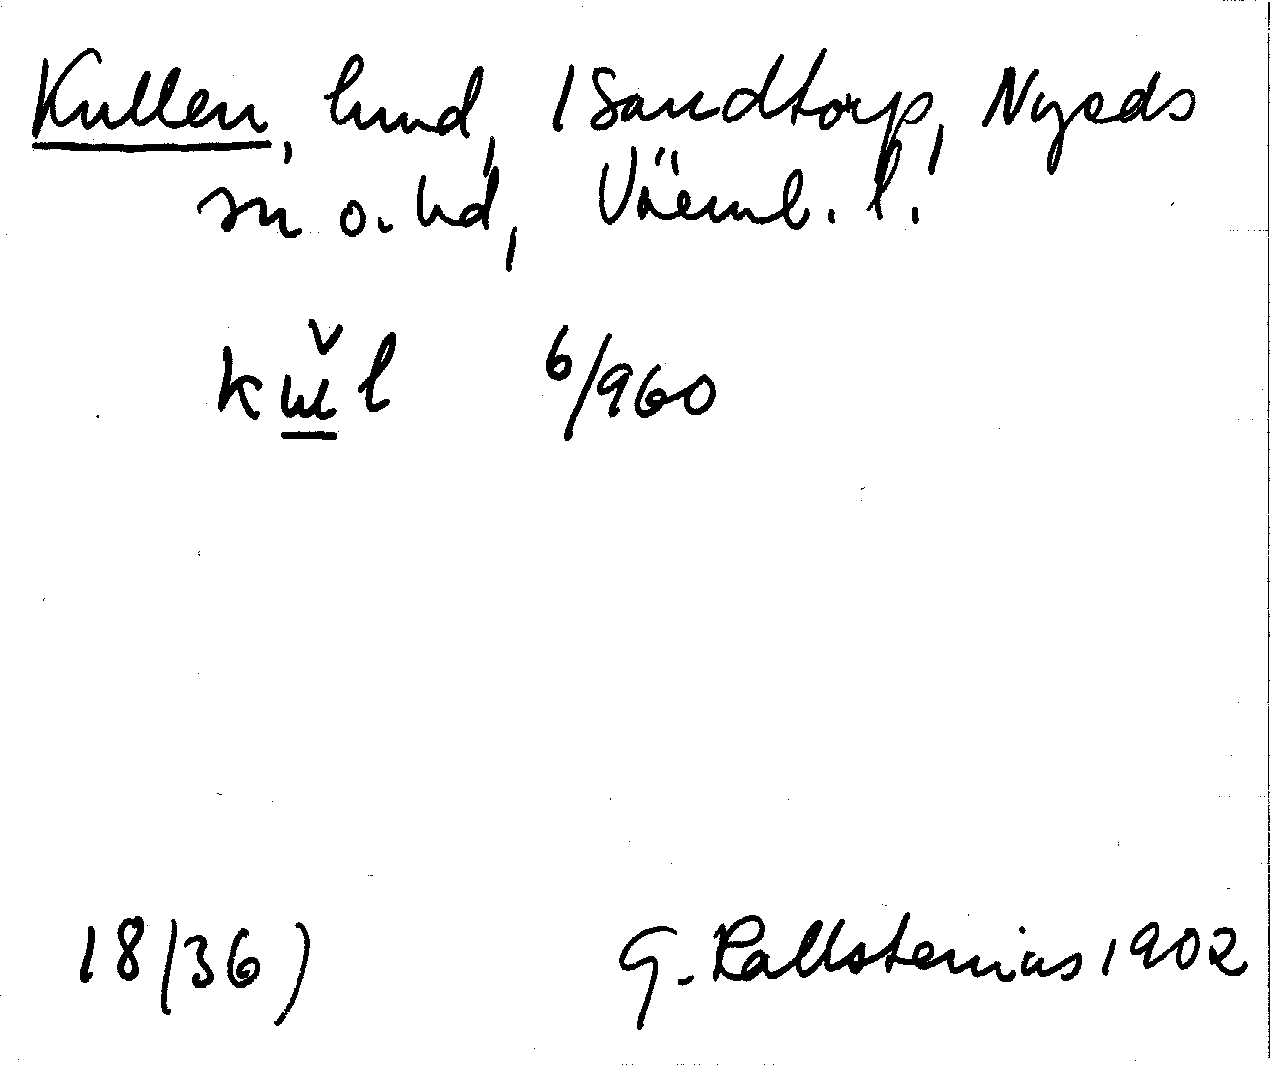 Kullen, hmd, 1 Sandtorp, Nyeds
sn o. hd, Värml. l.
kw̌l 6/960
18/36) G. Kallstenius 1902